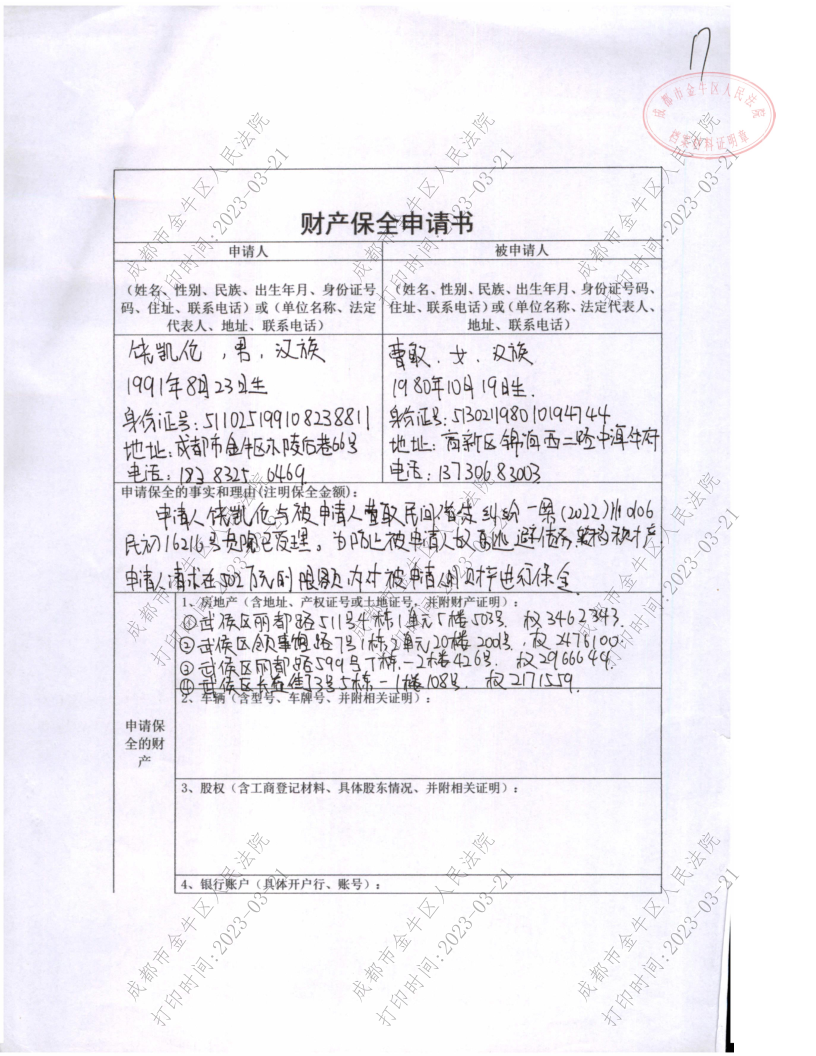 17
成都市金牛区人民法院
档案资料证明章
财产保全申请书
申请人
被申请人
（姓名、性别、民族、出生年月、身份证号
码、住址、联系电话）或（单位名称、法定
代表人、地址、联系电话）
（姓名、性别、民族、出生年月、身份证号码、
住址、联系电话）或（单位名称、法定代表人、
地址、联系电话）
饶凯伦，男，汉族
1991年8月23日生
身份证号：511025199108238811
地址：成都市金牛区木陵后巷66号
电话：183 8325 0469
曹取，女，汉族
1980年10月19日生.
身份证号：513021198010194744
地址：高新区锦 西二路中洱
电话：13730683003
申请保全的事实和理由(注明保全金额)：
申请人饶凯伦与被申请人曹取民间借贷纠纷一案(2022)川0106
民初16216号 院已受理。为防止被申请人故意逃避债务 财产
申请人请求在502万元的限额内对被申请人财产进行保全
申请保
全的财
产
1、房地产（含地址、产权证号或土地证号，并附财产证明）：
①武侯区丽都路511号4栋1单元5楼503号. 权3462343.
②武侯区领事馆路7号1栋2单元20楼2001号，权2476100
③武侯区丽都路599号7栋.-2楼426号. 权2966644.
④武侯区长益街73号5栋-1楼108号. 权2171559.
2、车辆（含型号、车牌号、并附相关证明）：
3、股权（含工商登记材料、具体股东情况、并附相关证明）：
4、银行账户（具体开户行、账号）：
成都市金牛区人民法院
打印时间:2023-03-21
成都市金牛区人民法院
打印时间:2023-03-21
成都市金牛区人民法院
打印时间:2023-03-21
成都市金牛区人民法院
打印时间:2023-03-21
成都市金牛区人民法院
打印时间:2023-03-21
成都市金牛区人民法院
打印时间:2023-03-21
成都市金牛区人民法院
打印时间:2023-03-21
成都市金牛区人民法院
打印时间:2023-03-21
成都市金牛区人民法院
打印时间:2023-03-21